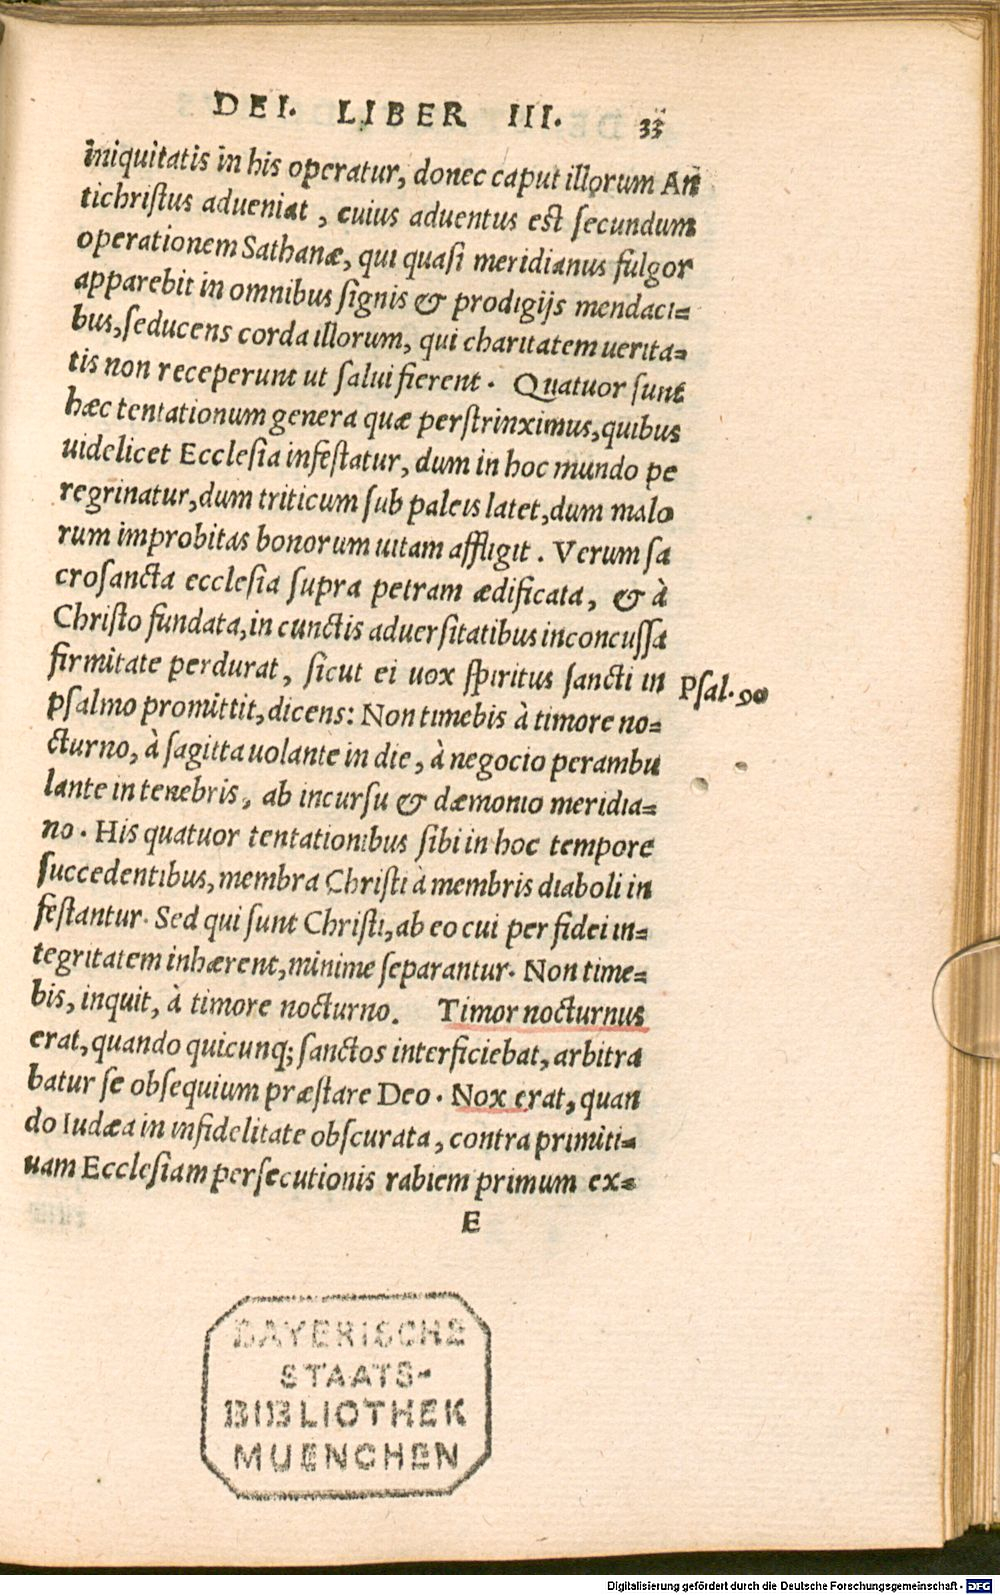 DEI. LIBER III. 33
iniquitatis in his operatur, donec caput illorum An
tichriſtus adueniat, cuius aduentus eſt ſecundum
operationem Sathanæ, qui quaſi meridianus fulgor
apparebit in omnibus ſignis & prodigijs mendaci=
bus, ſeducens corda illorum, qui charitatem uerita=
tis non receperunt ut ſalui fierent. Quatuor ſunt
hæc tentationum genera quæ perſtrinximus, quibus
uidelicet Eccleſia infeſtatur, dum in hoc mundo pe
regrinatur, dum triticum ſub paleis latet, dum malo
rum improbitas bonorum uitam affligit. Verum ſa
croſancta eccleſia ſupra petram ædificata, & à
Chriſto fundata, in cunctis aduerſitatibus inconcuſſa
firmitate perdurat, ſicut ei uox ſpiritus ſancti in
Pſal. 90
pſalmo promittit, dicens: Non timebis à timore no=
cturno, à ſagitta uolante in die, à negocio perambu
lante in tenebris, ab incurſu & dæmonio meridia=
no. His quatuor tentationibus ſibi in hoc tempore
ſuccedentibus, membra Chriſti à membris diaboli in
feſtantur. Sed qui ſunt Chriſti, ab eo cui per fidei in=
tegritatem inhærent, minime ſeparantur. Non time=
bis, inquit, à timore nocturno. Timor nocturnus
erat, quando quicunq; ſanctos interficiebat, arbitra
batur ſe obſequium præſtare Deo. Nox erat, quan
do Iudæa in infidelitate obſcurata, contra primiti=
uam Eccleſiam perſecutionis rabiem primum ex=
E
BAYERISCHE
STAATS-
BIBLIOTHEK
MUENCHEN
Digitalisierung gefördert durch die Deutsche Forschungsgemeinschaft - DFG